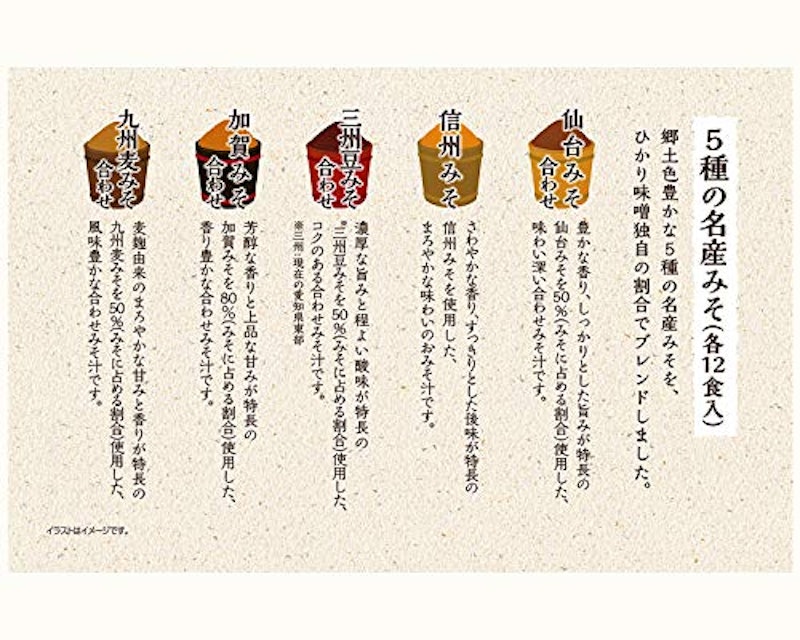 5種の名産みそ(各12食入)
郷土色豊かな5種の名産みそを、
ひかり味噌独自の割合でブレンドしました。
仙台みそ
合わせ
豊かな香り、しっかりとした旨みが特長の
仙台みそを50%(みそに占める割合)使用した、
味わい深い合わせみそ汁です。
信州みそ
さわやかな香り、すっきりとした後味が特長の
信州みそを使用した、
まろやかな味わいのおみそ汁です。
三州豆みそ
合わせ
濃厚な旨みと程よい酸味が特長の
三州豆みそを50%(みそに占める割合)使用した、
コクのある合わせみそ汁です。
※三州:現在の愛知県東部
加賀みそ
合わせ
芳醇な香りと上品な甘みが特長の
加賀みそを80%(みそに占める割合)使用した、
香り豊かな合わせみそ汁です。
九州麦みそ
合わせ
麦麹由来のまろやかな甘みと香りが特長の
九州麦みそを50%(みそに占める割合)使用した、
風味豊かな合わせみそ汁です。
イラストはイメージです。